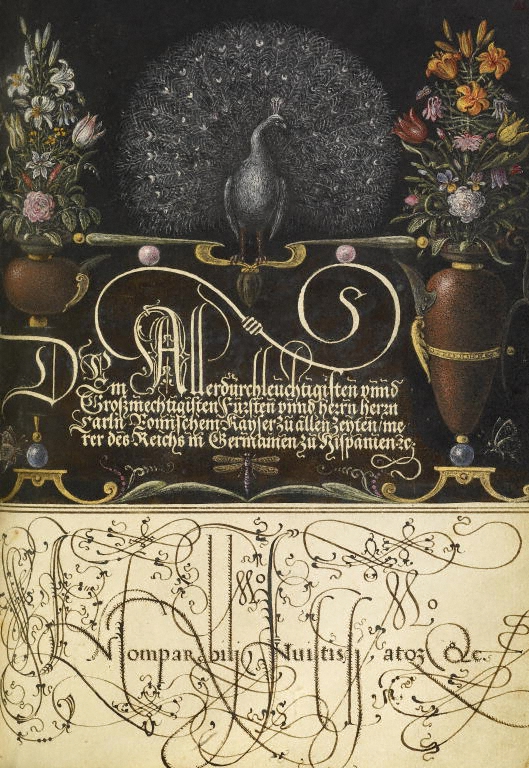 Dem Allerdurchleuchtigisten vnnd
Großmechtigisten Fürsten vnnd herrn herrn
Carln Römischem Kayser zu allen Zeyten / me
rer des Reichs in Germanien zu Hispanien ꝛc
Mo Mo
ompar bili Nui tis atoꝛ &c.